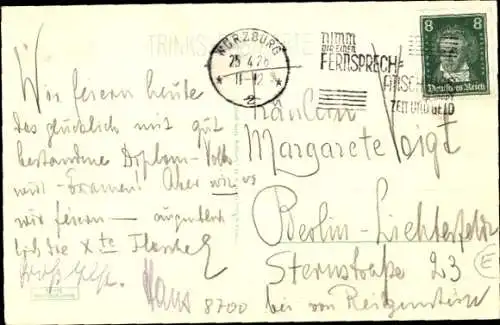 WÜRZBURG
25.4.28
11-12
2
NIMM
DIR EINEN
FERNSPRECH-
ANSCHLUSS
ZEIT UND GELD
8 8
Deutsches Reich
Wir feiern heute
das glücklich mit gut
bestandene Diplom-Volks
wirt-Examen! Aber wie
wir feiern — augenblick
lich die Xte Flasche!
Hans
Fräulein
Margarete Voigt
Berlin-Lichterfelde
Sternstraße 23
bei von Reitzenstein
8700
E